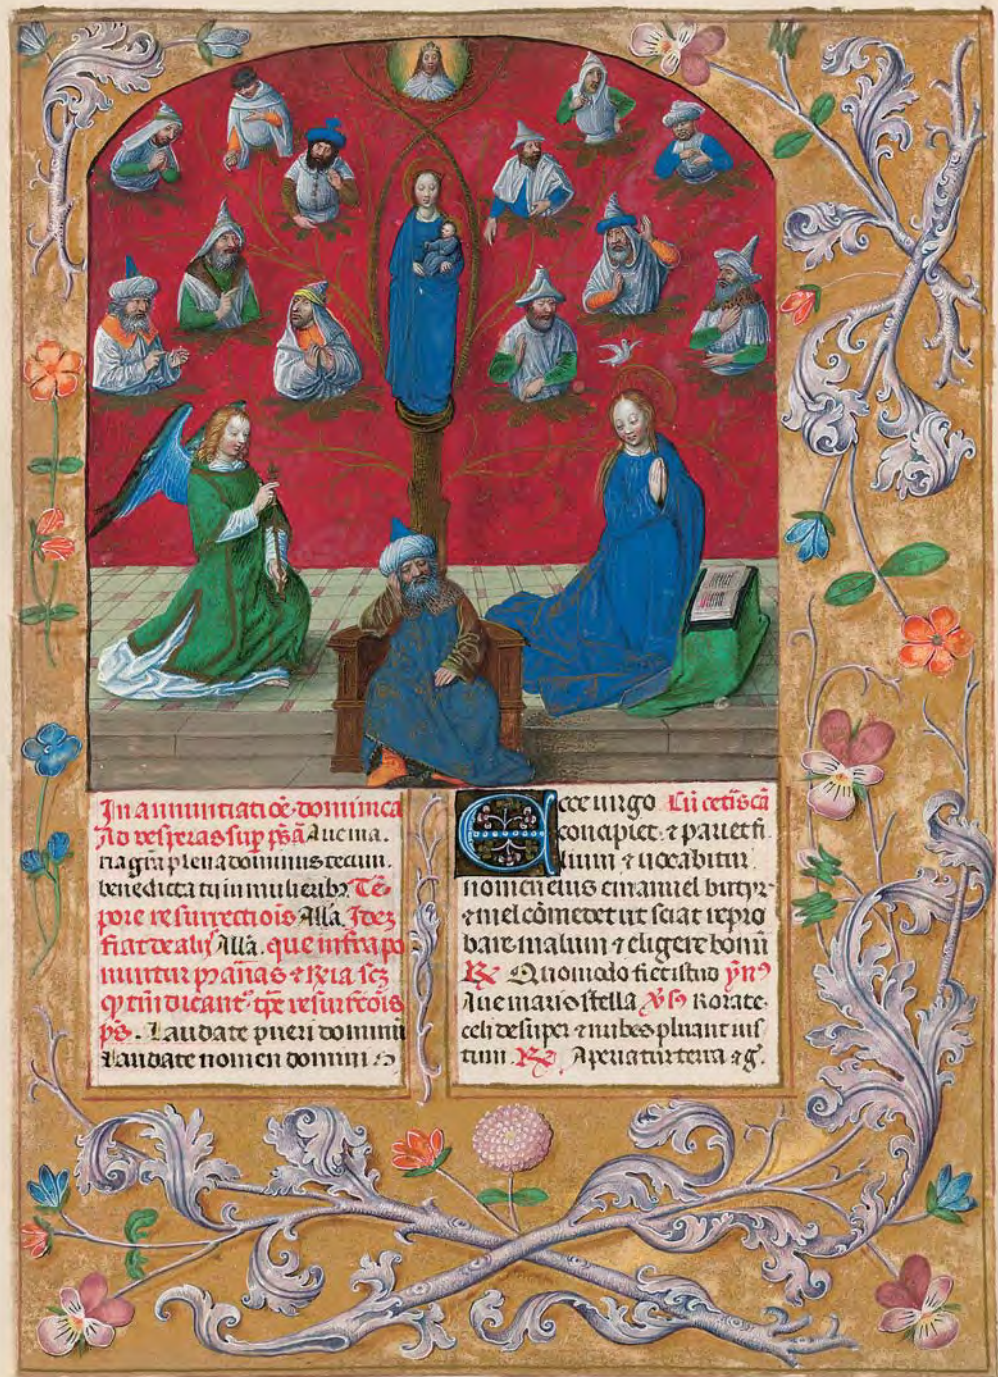 In annuntiatiōe dominica
Ad vesperas sup psā Ave ma
ria gr̄a plena dominus tecum.
benedicta tu in mulieribꝫ Tē
pore resurrectiōis Allā. Idez
fiat de alijs Allā. que infra po
nuntur p̱ añas ⁊ R̄ia scꝫ
Laudate pueri dominū
Laudate nomen domini
Ecce virgo Cū cetīs cā
concipiet ⁊ pariet fi
lium ⁊ vocabitur
nomen eius emanuel butyr
⁊ mel cōmedet ut sciat repro
bare malum ⁊ eligere bonū
℟ Quomodo fiet istud yn⁹
Ave maris stella ℣s⁹ Rorate
celi desuper ⁊ nubes pluant ius
tum ℟ Aperiatur terra ⁊ g̃.